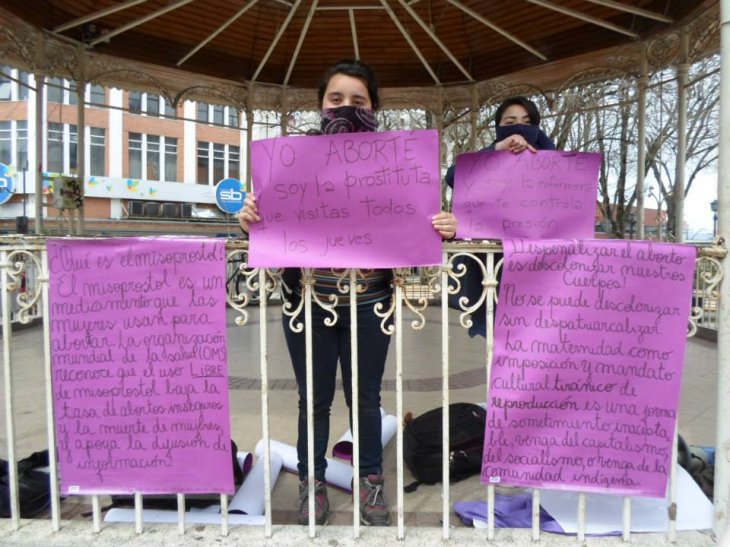 YO ABORTÉ
soy la prostituta
que visitas todos
los jueves
YO ABORTÉ
la enfermera
que te controla
la presión
¿Qué es el misoprostol?
El misoprostol es un
medicamento que las
mujeres usan para
abortar. La organización
mundial de la salud (OMS)
reconoce que el uso LIBRE
de misoprostol baja la
tasa d abortos inseguros
y la muerte de mujeres,
y apoya la difusión de
información
¡Despenalizar el aborto
es descolonizar nuestros
Cuerpos!
No se puede descolonizar
sin despatriarcalizar
La maternidad como
imposición y mandato
cultural tiránico de
reproducción es una forma
de sometimiento inacepta
ble, venga del capitalismo,
del socialismo, o venga de la
comunidad indígena
sb
sb